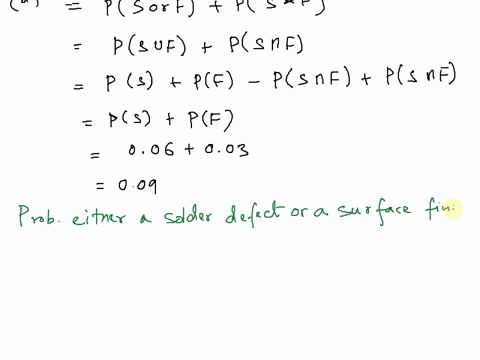 = P(S or F) + P(S & F)
= P(S ∪ F) + P(S ∩ F)
= P(S) + P(F) - P(S ∩ F) + P(S ∩ F)
= P(S) + P(F)
= 0.06 + 0.03
= 0.09
Prob. either a solder defect or a surface fini